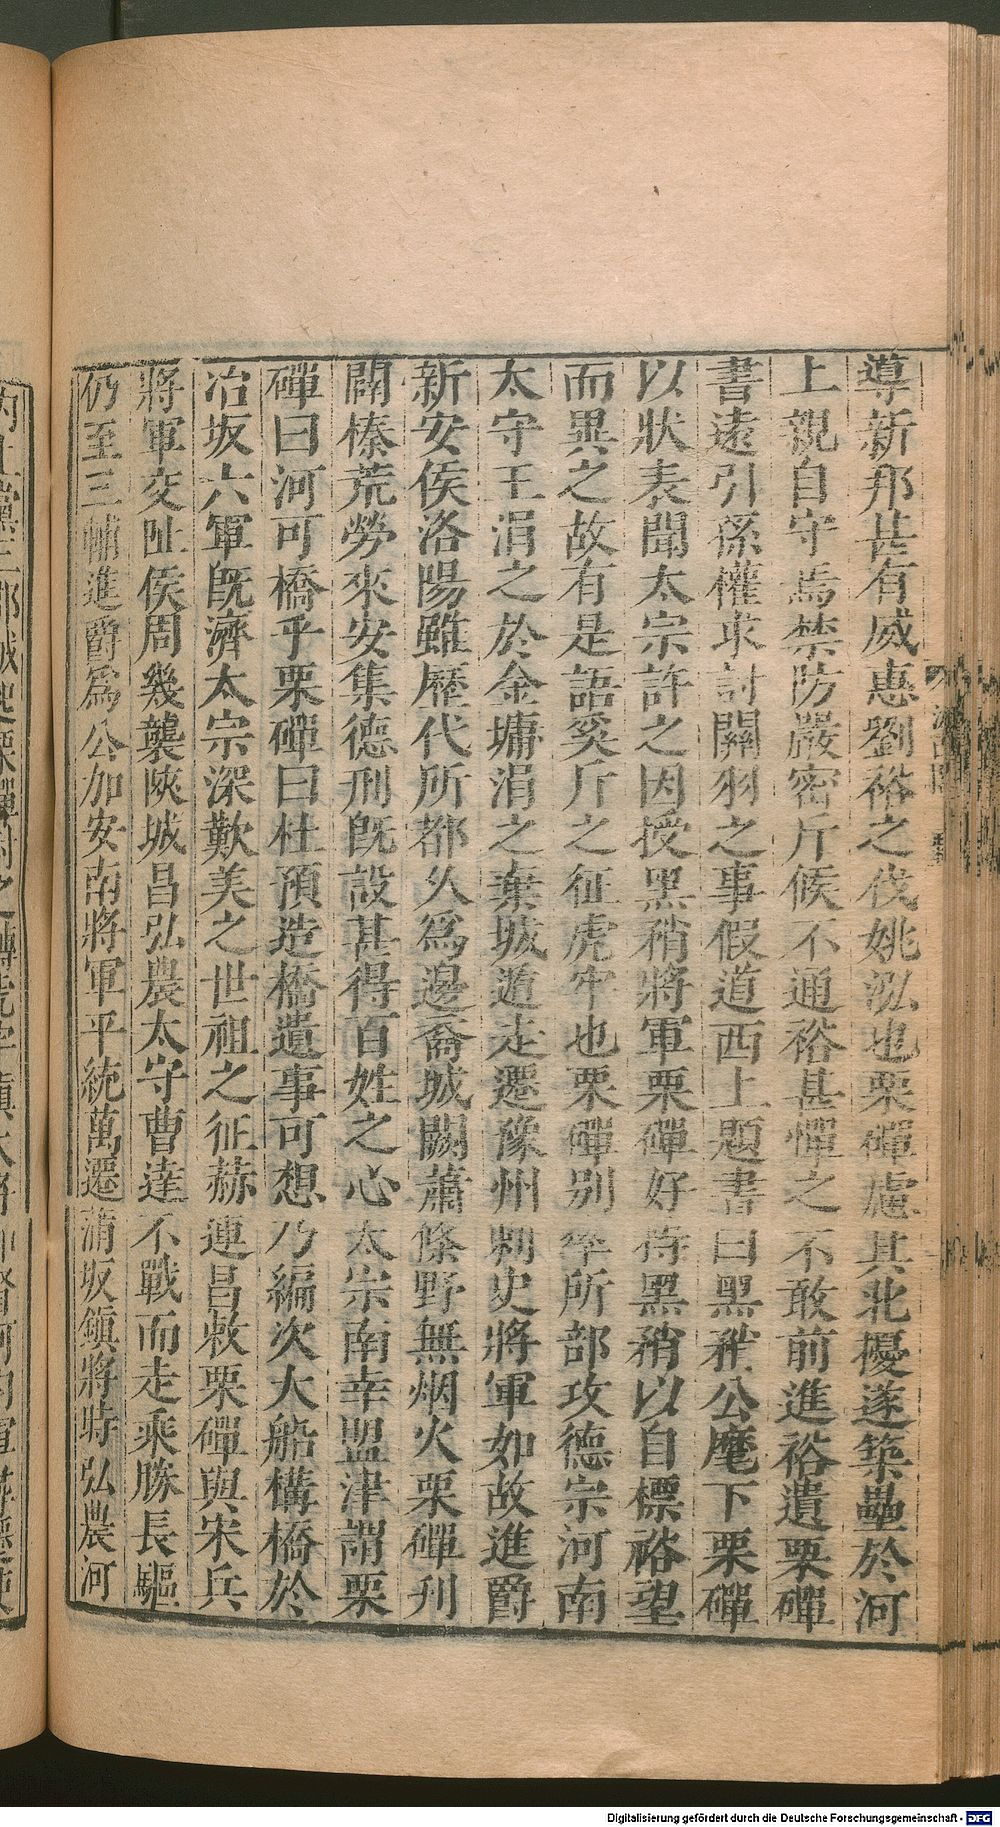 導新邦甚有威惠劉裕之伐姚泓也栗磾慮其北擾遂築壘於河
上親自守焉禁防嚴密斥候不通裕甚憚之不敢前進裕遺栗磾
書遠引孫權求討關羽之事假道西上題書曰黑矟公麾下栗磾
以狀表聞太宗許之因授黑矟將軍栗磾好持黑矟以自標裕望
而異之故有是語奚斤之征虎牢也栗磾別率所部攻德宗河南
太守王涓之於金墉涓之棄城遁走遷豫州刺史將軍如故進爵
新安侯洛陽雖歷代所都久為邊裔城闕蕭條野無烟火栗磾刋
闢榛荒勞來安集德刑旣設甚得百姓之心太宗南幸盟津謂栗
磾曰河可橋乎栗磾曰杜預造橋遺事可想乃編次大船構橋於
冶坂六軍旣濟太宗深歎美之世祖之征赫連昌敕栗磾與宋兵
將軍交阯侯周幾襲陝城昌弘農太守曹達不戰而走乘勝長驅
仍至三輔進爵為公加安南將軍平統萬遷蒲坂鎮將時弘農河
Digitalisierung gefördert durch die Deutsche Forschungsgemeinschaft - DFG